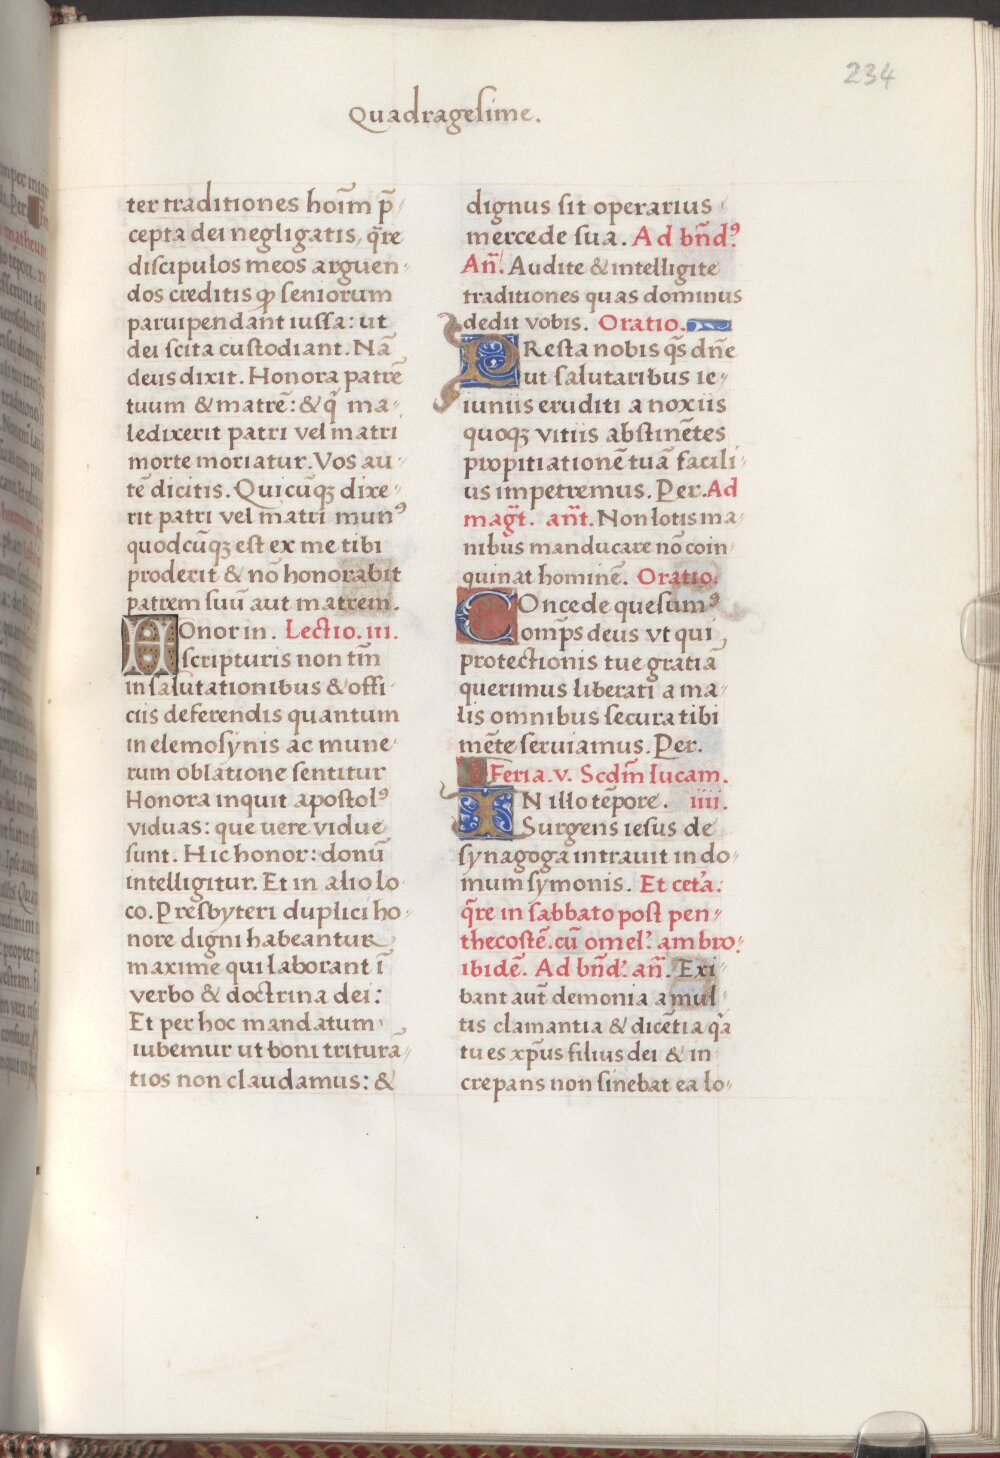 234
Quadragesime.
ter traditiones hoīm p̄
cepta dei negligatis, q̄re
discipulos meos arguen
dos creditis ꝙ seniorum
paruipendant iussa: ut
dei scita custodiant. Nā
deus dixit. Honora patrē
tuum & matrē: & q̄ ma
ledixerit patri vel matri
morte moriatur. Vos au
tē dicitis. Quicūqꝫ dixe
rit patri vel matri munꝰ
quodcūqꝫ est ex me tibi
proderit & nō honorabit
patrem suū aut matrem.
HOnor in. Lectio. iii.
scripturis non tm̄
in salutationibus & offi
ciis deferendis quantum
in elemosynis ac mune
rum oblatione sentitur
Honora inquit apostolꝰ
viduas: que uere vidue
sunt. Hic honor: donū
intelligitur. Et in alio lo
co. Presbyteri duplici ho
nore digni habeantur
maxime qui laborant ī
verbo & doctrina dei:
Et per hoc mandatum
iubemur ut boni triturā
tios non claudamus: &
dignus sit operarius
mercede sua. Ad bn̄dꝰ.
An̄. Audite & intelligite
traditiones quas dominus
dedit vobis. Oratio.
PResta nobis q̄s dn̄e
ut salutaribus ie
iuniis eruditi a noxiis
quoqꝫ vitiis abstinētes
propitiationē tuā facili
us impetremus. Per. Ad
mag̅t. an̄t. Non lotis ma
nibus manducare nō coin
quinat hominē. Oratio.
COncede quesumꝰ
omp̄s deus vt qui
protectionis tue gratiā
querimus liberati a ma
lis omnibus secura tibi
mēte seruiamus. Per.
Feria. v. Scdm̄ lucam.
IN illo tēpore. iiii.
Surgens iesus de
synagoga intrauit in do
mum symonis. Et cetꝰa.
q̄re in sabbato post pen
thecostē. cū omel'. ambro
ibidē. Ad bn̄d'. an̄. Exi
bant aut̄ demonia a mul
tis clamantia & dicētia q̄a
tu es xp̄us filius dei & in
crepans non sinebat ea lo